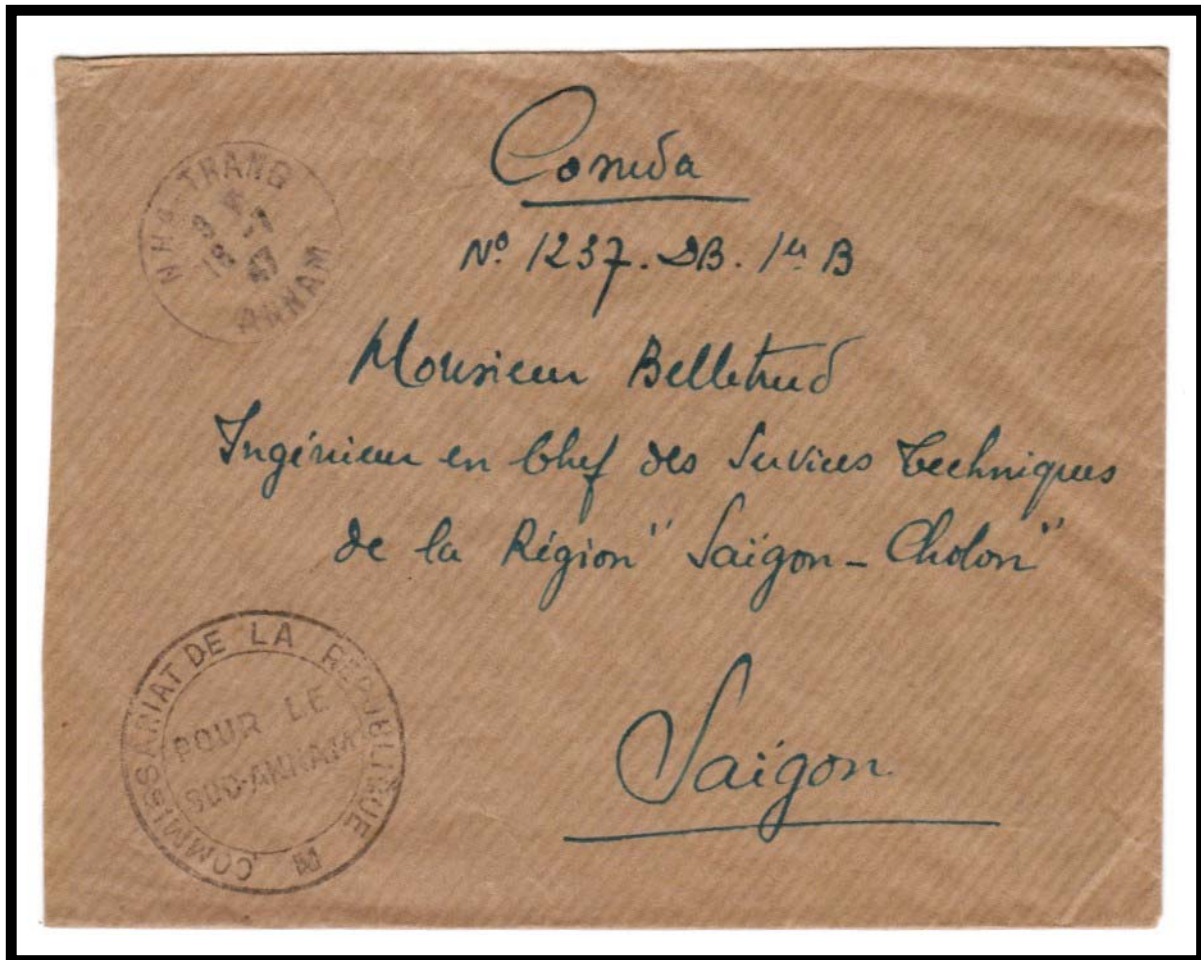 NHA-TRANG
ANNAM
Nº 1237. DB. 1er B
Monsieur Belletrud
Ingénieur en Chef des Services Techniques
de la Région "Saïgon-Cholon"
Saïgon
COMMISSARIAT DE LA REPUBLIQUE
POUR LE
SUD-ANNAM